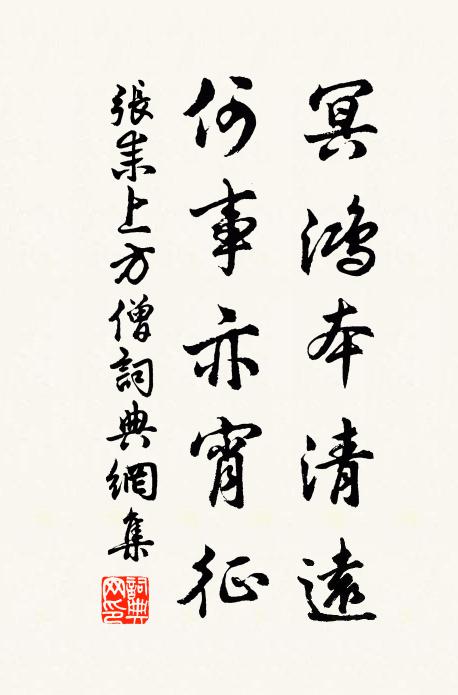 冥鴻本清遠
何事亦宵征
張耒上方僧詞典網集
詞典網印